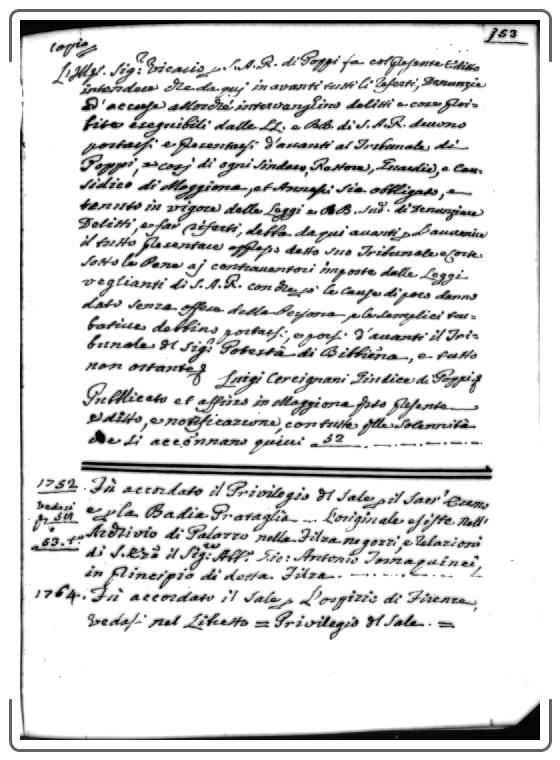 353
Copia
L'Ill.mo Sig.r Vicario p. S.A.R. di Poppi fa col presente Editto
intendere che da qui in avanti tutti li referti, Denunzie
ed accuse allorchè intervenghino delitti e cose proi-
bite eseguibili dalle LL. e BB. di S.A.R. devono
portarsi e presentarsi d'avanti al Tribunale di
Poppi, e così di ogni Sindaco, Rettore, Guardie, e Cau-
sidico di Moggiona, et Annessi sia obbligato, e
tenuto in vigore delle Leggi e BB. Sud. di Denunziare
Delitti, e far referti, debba da qui avanti p. l'avvenire
il tutto presentare appresso detto suo Tribunale e Corte
sotto le Pene a i contraventori imposte dalle Leggi
veglianti di S.A.R. con che però le Cause di poco danno
dato senza offese della Persona, e le semplici tur-
bative debbino portarsi, e porsi d'avanti il Tri-
bunale del Sig.r Potestà di Bibbiena, e tutto
non ostante
Luigi Cercignani Giudice di Poppi
Pubblicato et affisso in Moggiona pnto presente
Editto, e notificazione, con tutte qlle Solennità
che si accennano quivi 52
1752. Fù accordato il Privilegio del Sale p. il Sacr. Eremo
vedasi e p. la Badia Prataglia ... L'originale esiste nell'
Archivio di Palazzo nella Filza negozzi, e relazioni
53. t.
di S.E. il Sig.re Antonio Tornaquinci,
in principio di detta Filza
1764. Fù accordato il Sale p. L'ospizio di Firenze,
vedasi nel Libretto = Privilegio del Sale. =